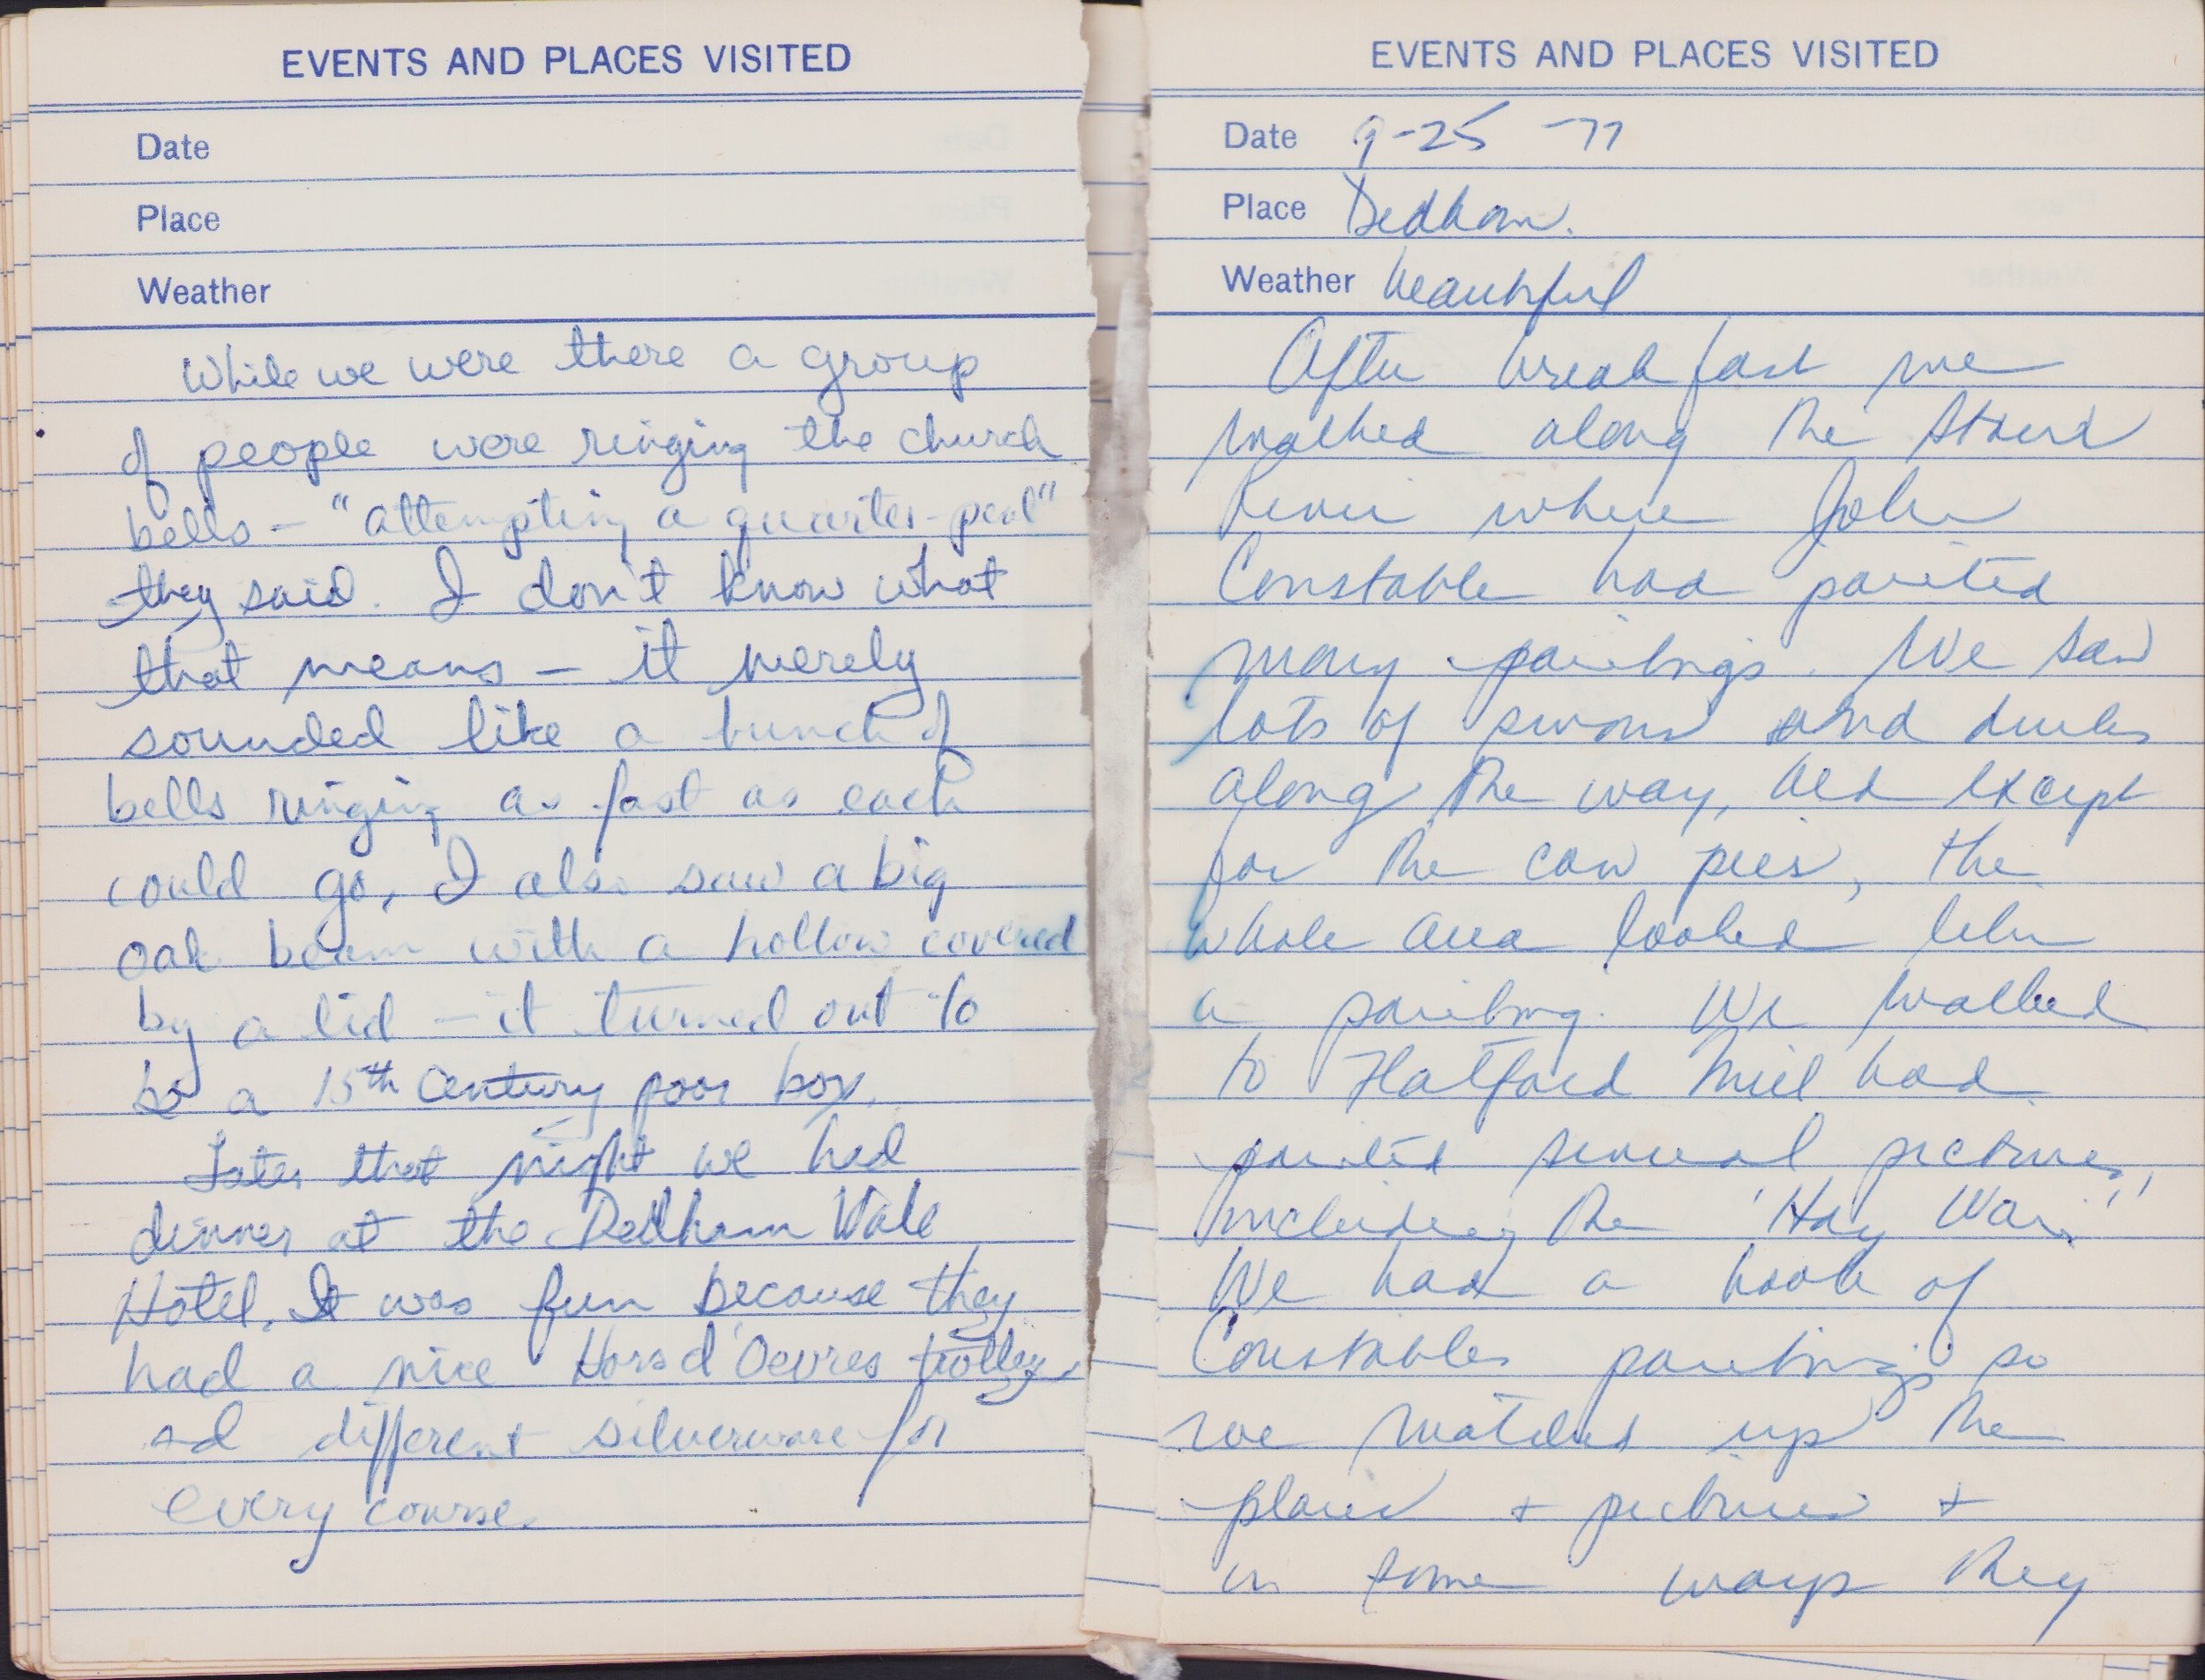 EVENTS AND PLACES VISITED
Date
Place
Weather
While we were there a group
of people were ringing the church
bells - "attempting a quarter-peal"
they said. I don't know what
that means - it merely
sounded like a bunch of
bells ringing as fast as each
could go, I also saw a big
oak beam with a hollow covered
by a lid - it turned out to
be a 15th century poor box.
Later that night we had
dinner at the Dedham Vale
Hotel. It was fun because they
had a nice Hors d'Oevres trolley
ad different silverware for
every course.
EVENTS AND PLACES VISITED
Date 9-25-77
Place Dedham.
Weather beautiful
After breakfast we
walked along the Stour
River where John
Constable had painted
many paintings. We saw
lots of swans and ducks
along the way, and except
for the cow pies, the
whole area looked like
a painting. We walked
to Flatford Mill had
painted several pictures,
including the 'Hay Wain'
We had a book of
Constables paintings so
we matched up the
places + pictures +
in some ways they